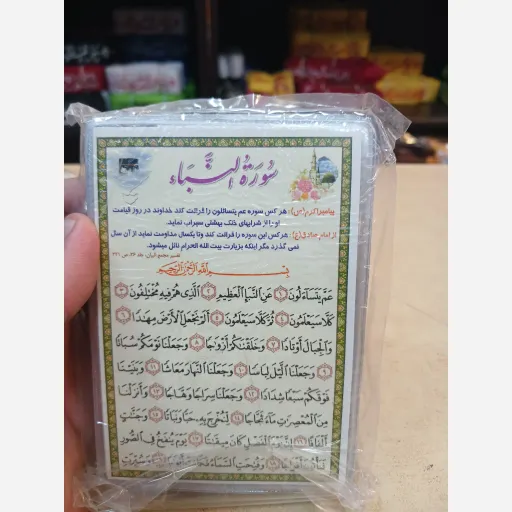 سورة النبأ
پیامبر اکرم (ص): هر کس سوره عم یتسائلون را قرائت کند خداوند در روز قیامت
او را از شرابهای خنک بهشتی سیراب نماید.
از امام صادق (ع): هر کس این سوره را قرائت کند و تا یکسال مداومت نماید از آن سال
نمی گذرد مگر اینکه بزیارت بیت الله الحرام نائل میشود.
بسم الله الرحمن الرحیم
عَمَّ يَتَسَاءَلُونَ ۱ عَنِ النَّبَإِ الْعَظِيمِ ۲ الَّذِي هُمْ فِيهِ مُخْتَلِفُونَ ۳
كَلَّا سَيَعْلَمُونَ ۴ ثُمَّ كَلَّا سَيَعْلَمُونَ ۵ أَلَمْ نَجْعَلِ الْأَرْضَ مِهَادًا ۶
وَالْجِبَالَ أَوْتَادًا ۷ وَخَلَقْنَاكُمْ أَزْوَاجًا ۸ وَجَعَلْنَا نَوْمَكُمْ سُبَاتًا
۹ وَجَعَلْنَا اللَّيْلَ لِبَاسًا ۱۰ وَجَعَلْنَا النَّهَارَ مَعَاشًا ۱۱ وَبَنَيْنَا
فَوْقَكُمْ سَبْعًا شِدَادًا ۱۲ وَجَعَلْنَا سِرَاجًا وَهَّاجًا ۱۳ وَأَنْزَلْنَا
مِنَ الْمُعْصِرَاتِ مَاءً ثَجَّاجًا ۱۴ لِنُخْرِجَ بِهِ حَبًّا وَنَبَاتًا ۱۵ وَجَنَّاتٍ
أَلْفَافًا ۱۶ إِنَّ يَوْمَ الْفَصْلِ كَانَ مِيقَاتًا ۱۷ يَوْمَ يُنْفَخُ فِي الصُّورِ
فَتَأْتُونَ أَفْوَاجًا ۱۸ وَفُتِحَتِ السَّمَاءُ فَكَانَتْ أَبْوَابًا ۱۹ وَسُيِّرَتِ